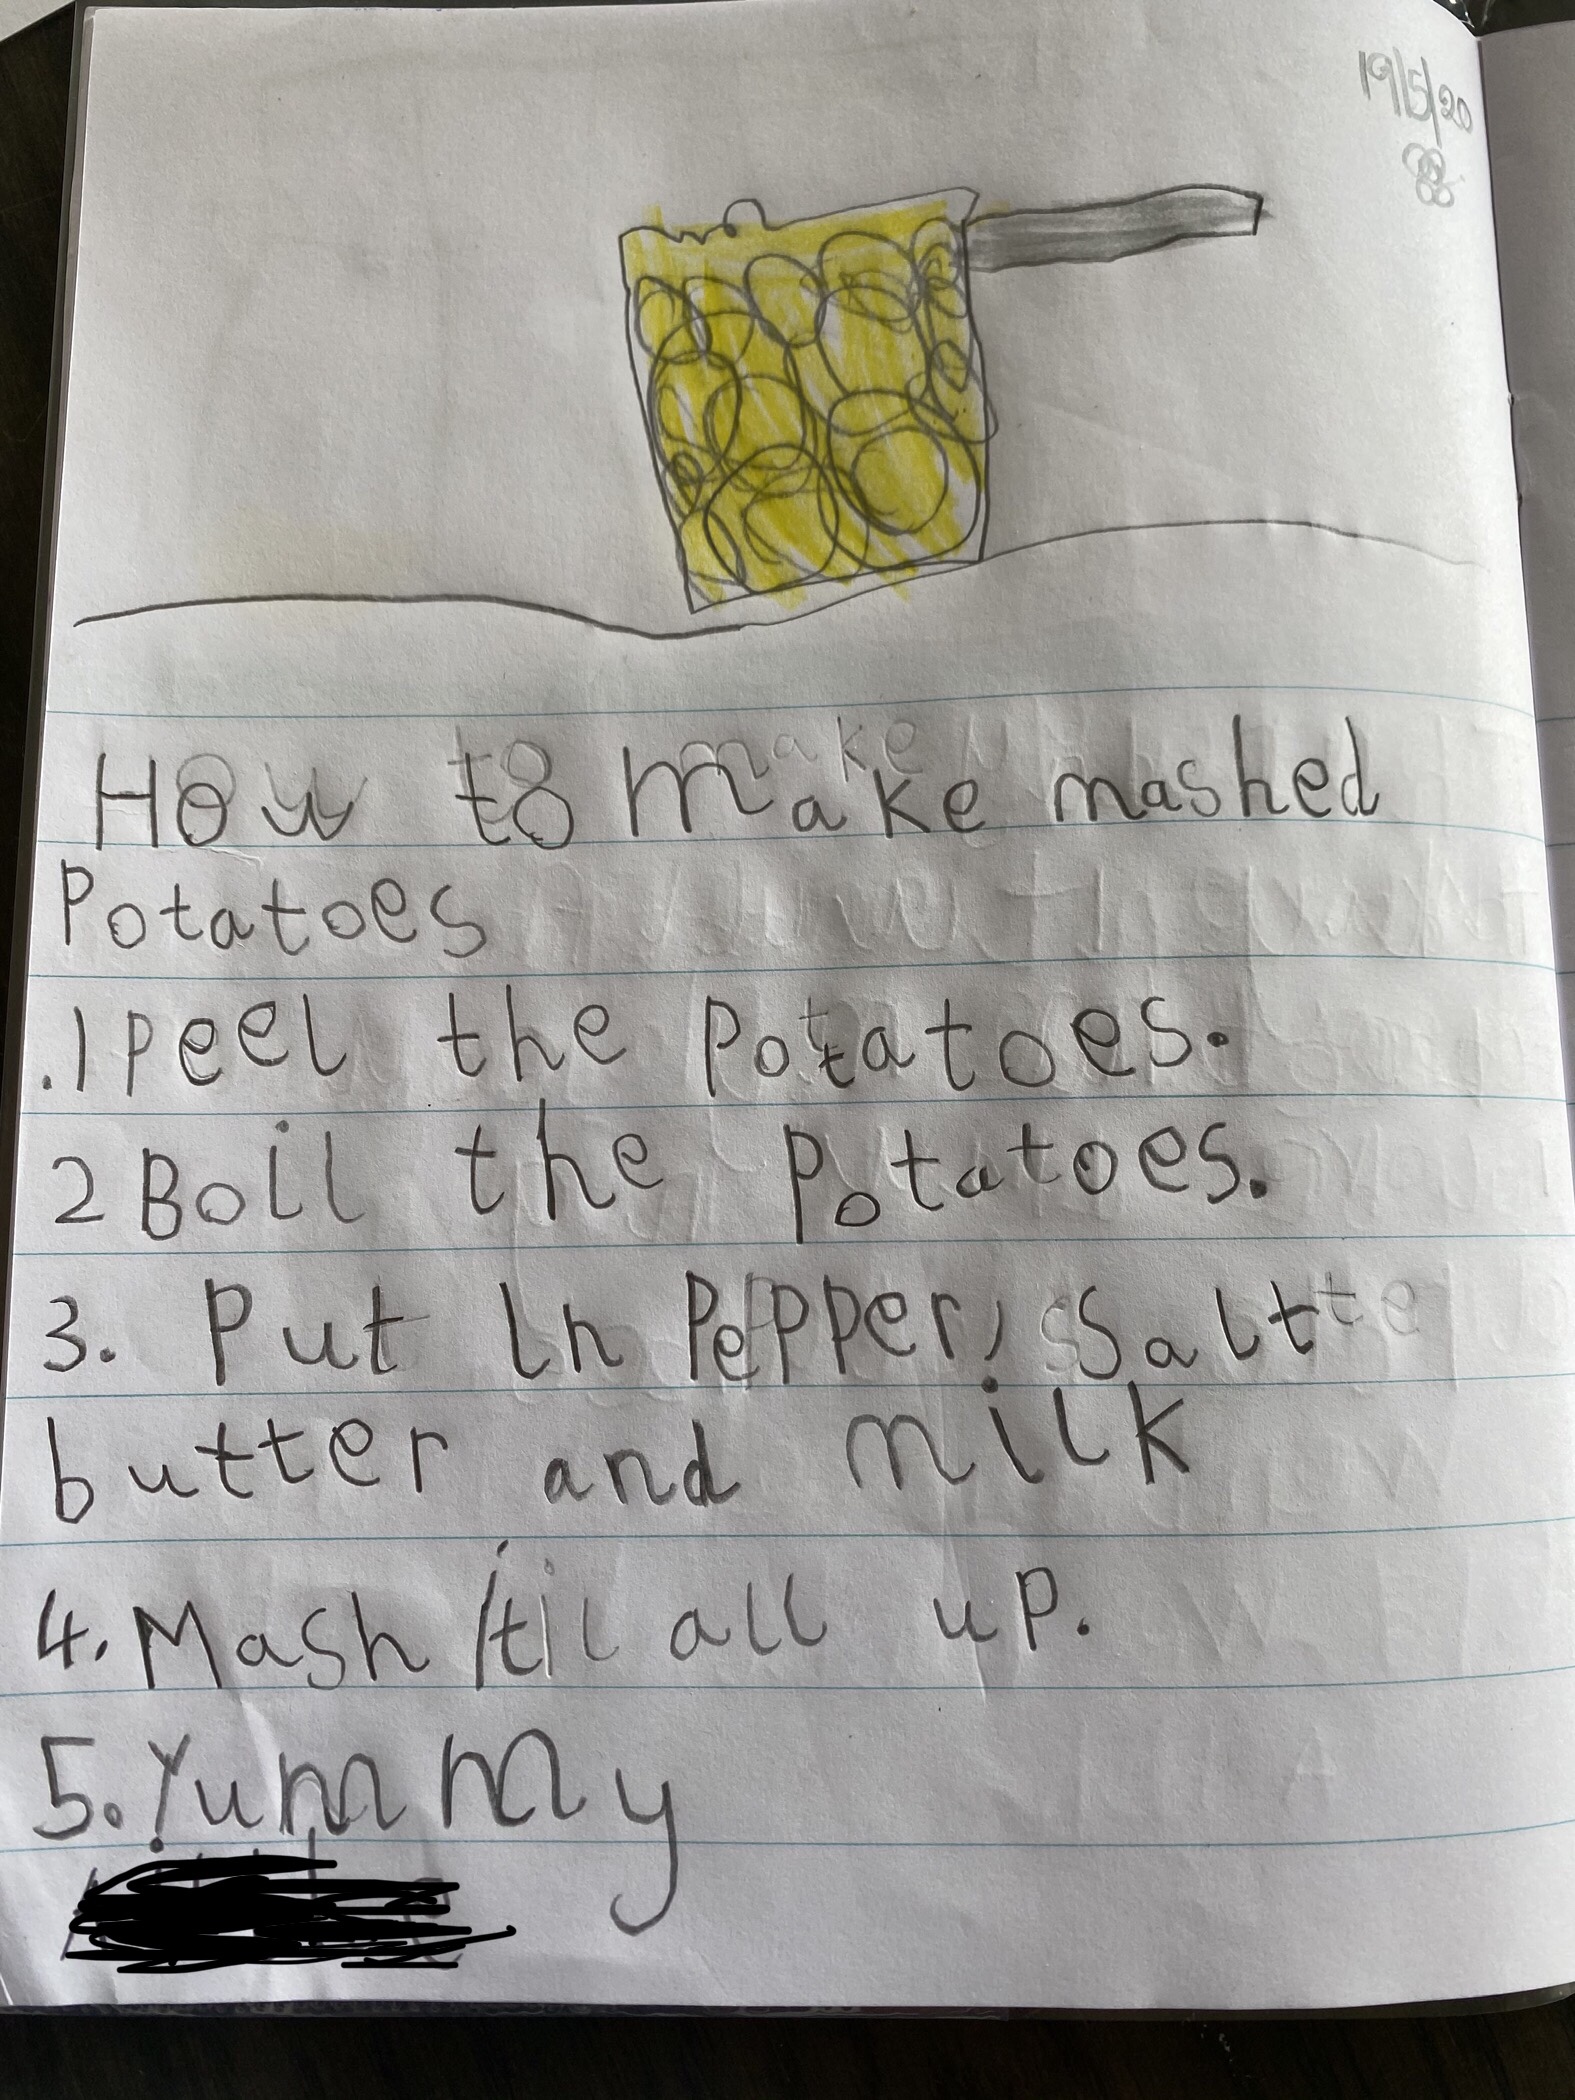 19/5/20
How to make mashed
Potatoes
.1 Peel the Potatoes.
2 Boil the Potatoes.
3. Put in Pepper, Salt
butter and milk
4. Mash it all up.
5. Yummy